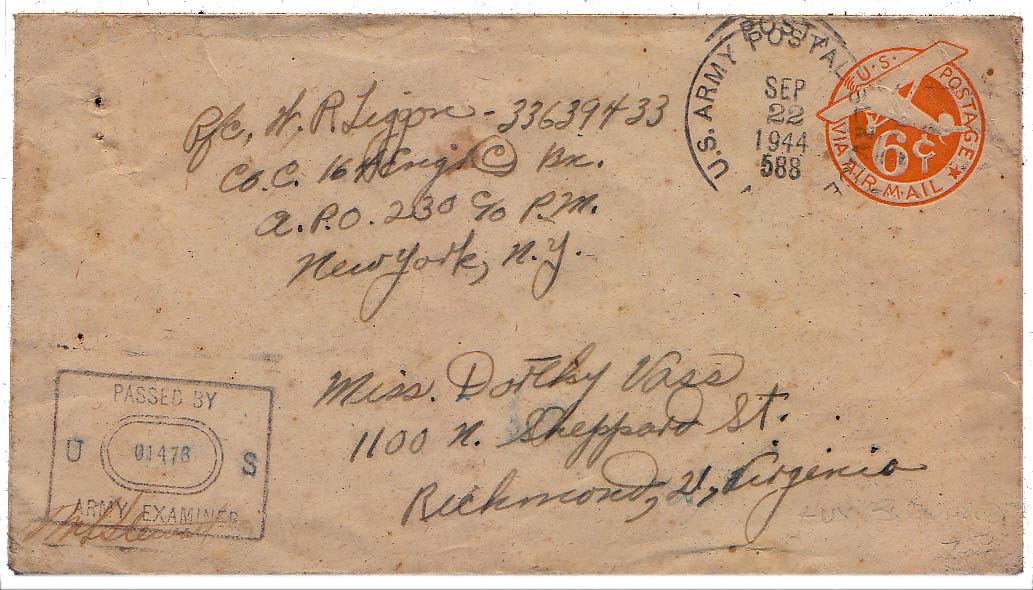 Pfc. W. R. Liggon - 33639433
Co. C. 164 Engr C Bn.
A.P.O. 230 c/o P.M.
New York, N.Y.
U.S. ARMY POSTAL
SEP
22
1944
588
U.S. POSTAGE
6¢
VIA AIR MAIL
Miss. Dorthy Vass
1100 N. Sheppard St.
Richmond, 21, Virginia
PASSED BY
U 01478 S
ARMY EXAMINER